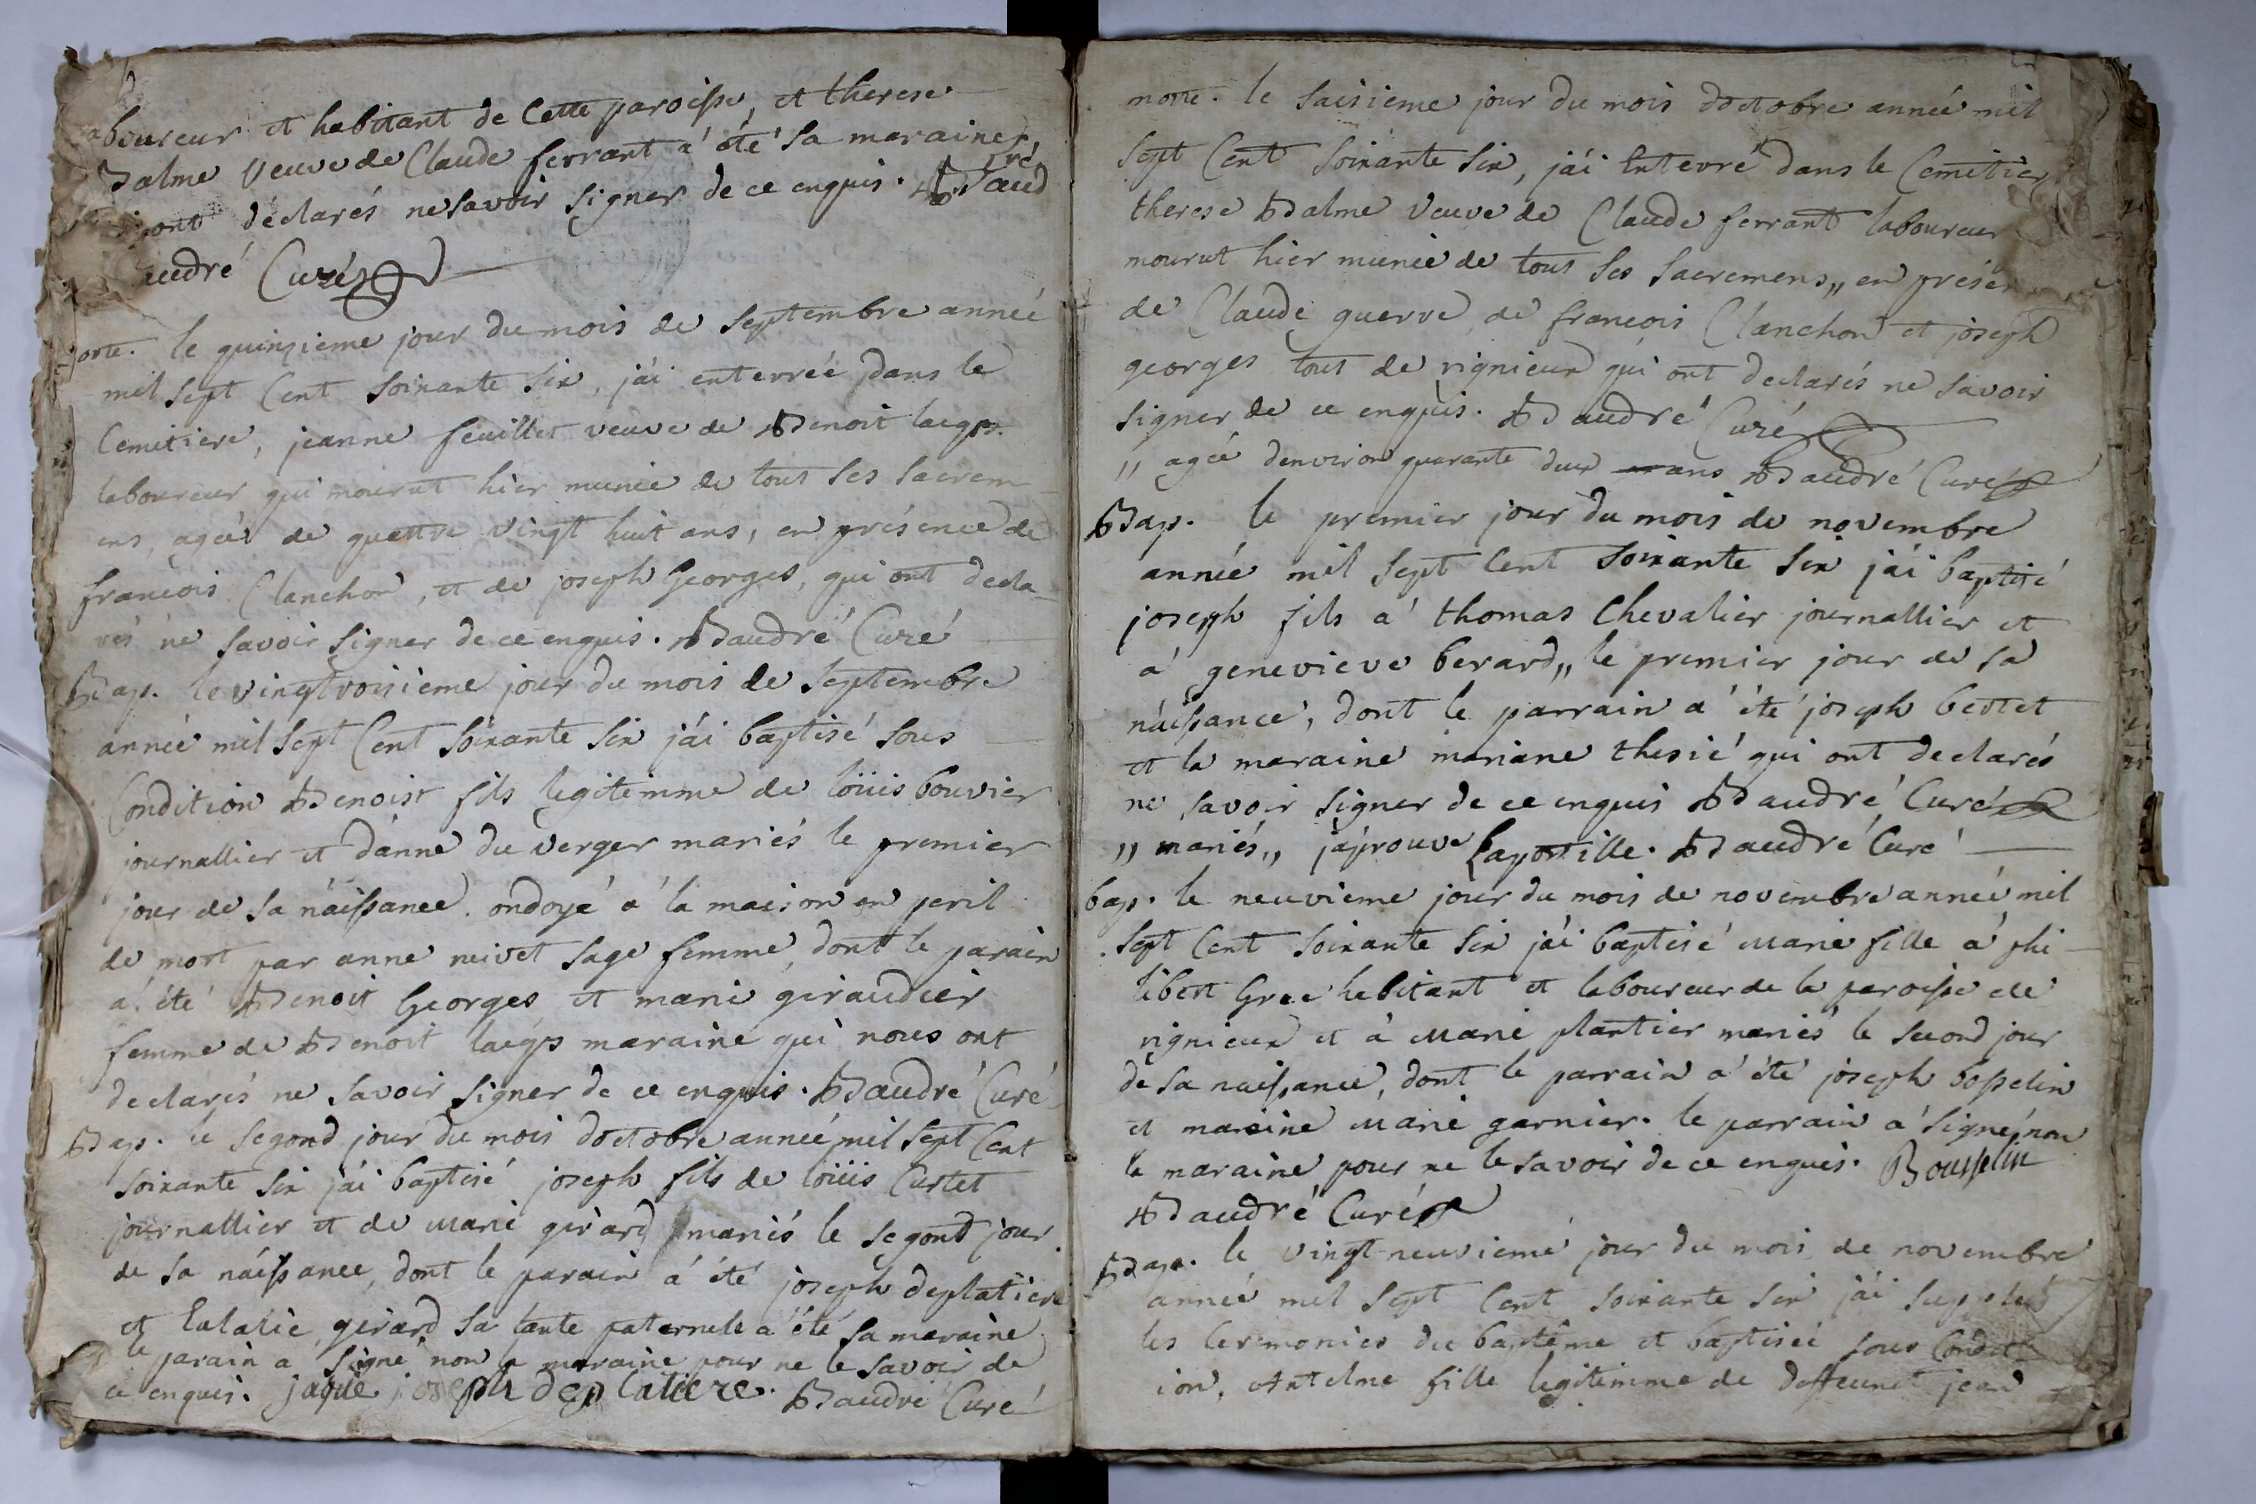 laboureur et habitant de Cette paroisse, et therese
Balme Veuve de Claude ferrant a' été sa maraine
ont declarés ne savoir signer de ce enquis.
audré Curé
morte. le quinzieme jour du mois de septembre année
mil sept Cent soixante six, j'ái enterréé dans le
Cemitiere, jeanne feuillet veuve de Benoit
laboureur qui mourut hier munie de tous ses sacrem
ens, agéé de quattre vingt huit ans, en présence de
francois Clanchon, et de joseph Georges, qui ont decla-
rés ne savoir signer de ce enquis. Baudré Curé
Bap. le vingtroisieme jour du mois de septembre
année mil sept Cent soixante six j'ái baptisé sous
Condition Benoist fils legitimme de loüis bouvier
journallier et d'anne du verger mariés le premier
jour de sa náissance. ondoyé a' la maison en peril
de mort par anne nivet sage femme, dont le parain
a' été Benoit Georges et marie giraudier
femme de Benoit maraine qui nous ont
declarés ne savoir signer de ce enquis. Baudré Curé
Bap. le segond jour du mois d'octobre année mil sept Cent
soixante six j'ái baptisé joseph fils de loüis Curtet
journallier et de marie girard mariés le segond jour
de sa náissance, dont le parain a' été joseph deplatiere
et Eulalie girard sa tante paternele a' été sa maraine
le parain a signé non la maraine pour ne le savoir de
ce enquis. jaque joseph deplatiere. Baudré Curé
morte. le saisieme jour du mois d'octobre année mil
sept Cent soixante six, j'ái Enterré dans le Cemitier
therese Balme veuve de Claude ferrant laboureur
mourut hier munie de tous ses sacremens,, en présen
de Claude guerre de francois Clanchon et joseph
georges tous de rignieux qui ont declarés ne savoir
signer de ce enquis. Baudré Curé
,, agéé d'environ quarante deux ans Baudré Curé
Bap. le premier jour du mois de novembre
année mil sept Cent soixante six j'ái baptisé
joseph fils a' thomas Chevalier journallier et
a' genevieve berard,, le premier jour de sa
náissance, dont le parrain a été joseph bertet
et la maraine mariane thesié qui ont declarés
ne savoir signer de ce enquis Baudré Curé
,, mariés,, j'áprouve l'apostille. Baudré Curé
bap. le neuvieme jour du mois de novembre année mil
sept Cent soixante six j'ái baptisé marie fille a' phi
libert Gree habitant et laboureur de la paroisse de
rignieux et a' marie plantier mariés le second jour
de sa naissance, dont le parrain a' été joseph bosselin
et maraine marie garnier. le parrain a' signé non
la maraine pour ne le savoir de ce enquis. Bousselin
Baudré Curé
Bap. le vingt-neuvieme jour du mois de novembre
année mil sept Cent soixante six j'ái suppléé
les Ceremonies du baptême et baptisée sous Condit
ion, Antelme fille legitimme de jean